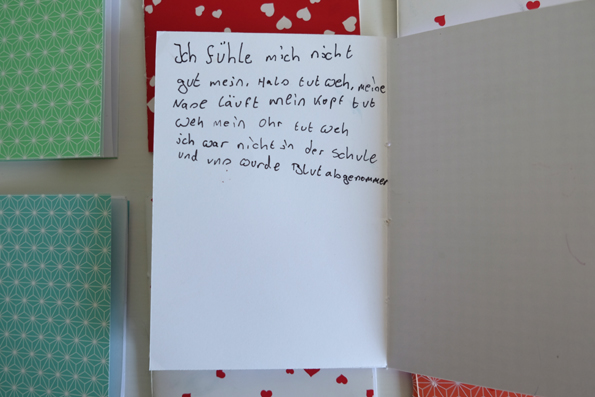 Ich fühle mich nicht
gut mein. Hals tut weh, meine
Nase läuft mein Kopf tut
weh mein Ohr tut weh
ich war nicht in der Schule
und uns wurde Blut abgenommen